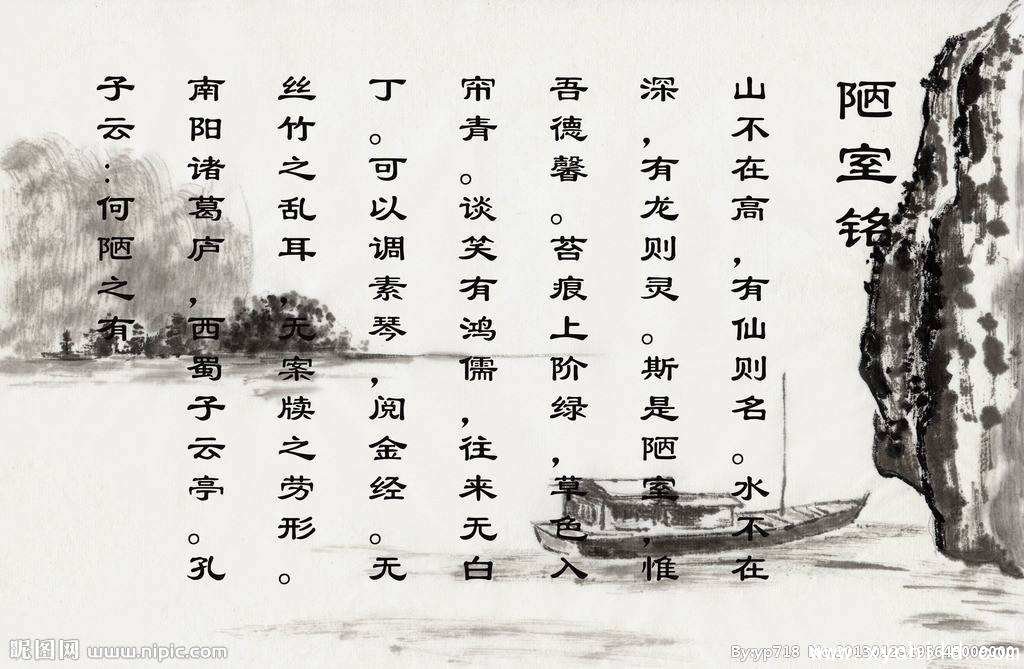 陋室铭
山不在高，有仙则名。水不在
深，有龙则灵。斯是陋室，惟
吾德馨。苔痕上阶绿，草色入
帘青。谈笑有鸿儒，往来无白
丁。可以调素琴，阅金经。无
丝竹之乱耳，无案牍之劳形。
南阳诸葛庐，西蜀子云亭。孔
子云：何陋之有
昵图网 www.nipic.com
By:yp718